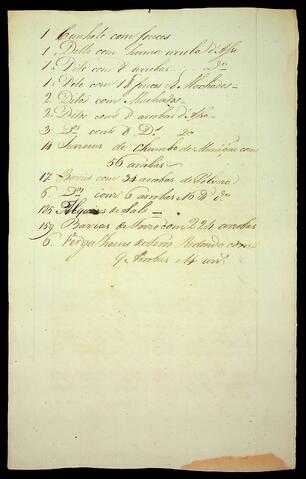 1 Cunhete com fouces
1 Ditto com huma arroba d'Aço
1 Dito com 8 arrobas Do
1 Dito com 18 fouces e 8 Machados
2 Ditos com Machados
2 Ditos com 8 arrobas d'Aço
3 Ds com 8 Ds Do
14 de Chumbo de Munição com
56 arrobas
17 Barris com 34 arrobas de Polvora
6 Ds com 6 arrobas 16 Do
135 Alqueires de Sal
159 Barras de Ferro com 224 arrobas
6 Vergalhoens de Ferro Redondo com
9 Arrobas e 4